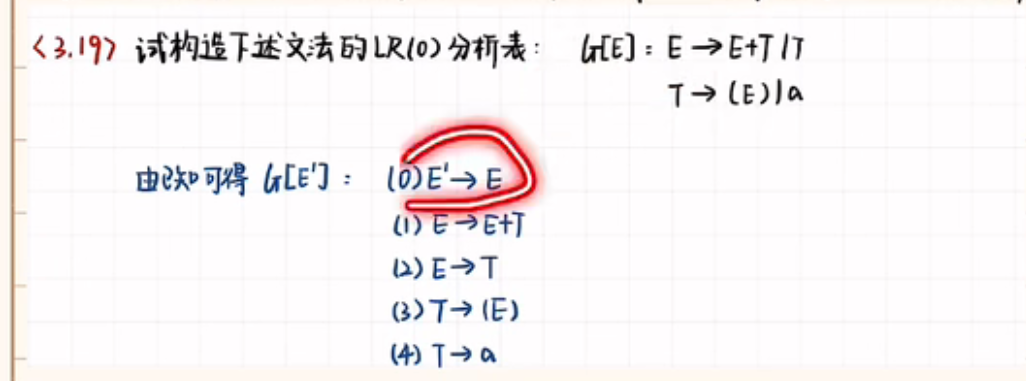 <3.19> 试构造下述文法的LR(0)分析表: G[E]: E→E+T|T
T→(E)|a
由已知可得 G[E']: (0)E'→E
(1) E→E+T
(2) E→T
(3) T→(E)
(4) T→a